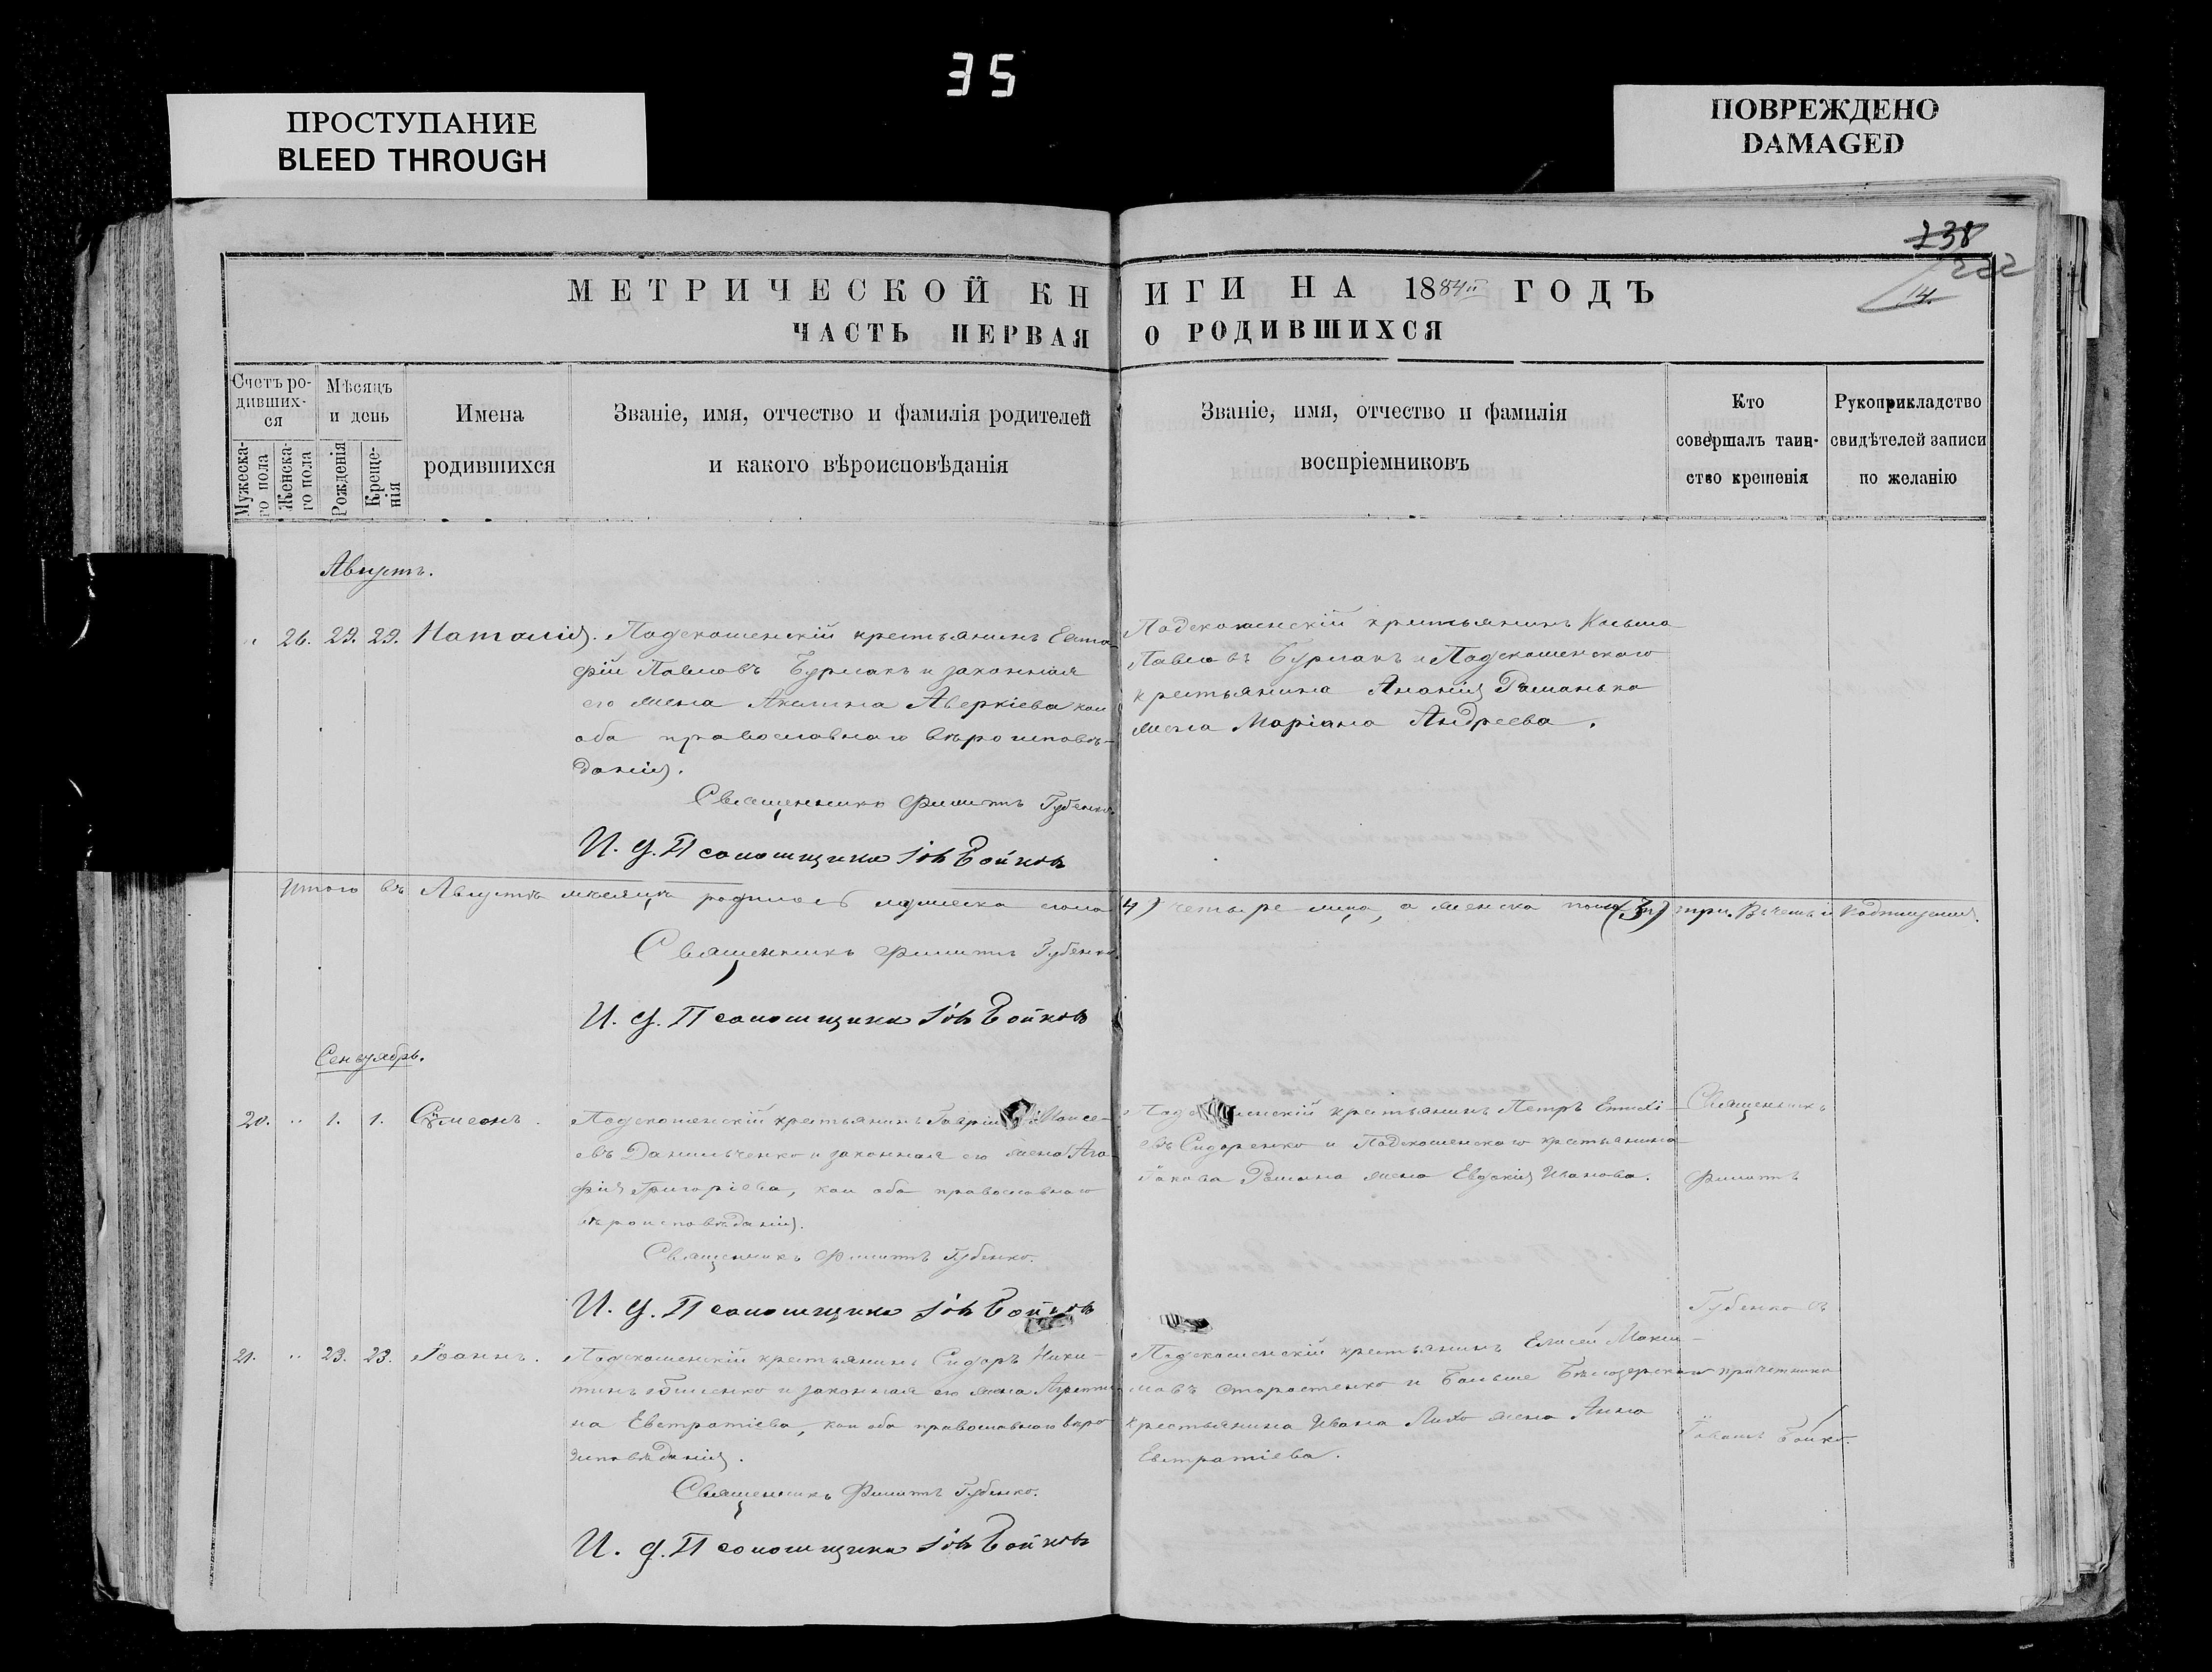 35
ПРОСТУПАНИЕ
BLEED THROUGH
ПОВРЕЖДЕНО
DAMAGED
238
222
14.
МЕТРИЧЕСКОЙ КНИГИ НА 1884й ГОДЪ
ЧАСТЬ ПЕРВАЯ О РОДИВШИХСЯ
Счетъ ро-
дивших-
ся
Мужеска-
го пола
Женска-
го пола
Мѣсяцъ
и день
Рожденія
Креще-
нія
Имена
родившихся
Званіе, имя, отчество и фамилія родителей
и какого вѣроисповѣданія
Званіе, имя, отчество и фамилія
воспріемниковъ
Кто
совершалъ таин-
ство крещенія
Рукоприкладство
свидѣтелей записи
по желанію
Августъ.
„ 26. 29. 29. Наталія. Подекошенскій крестьянинъ Евста-
фій Павловъ Бурлакъ и законная
его жена Акилина Аверкіева, кои
оба православнаго вѣроисповѣ-
данія.
Священникъ Филиппъ Губенко.
И. д. Псаломщика Іовъ Бойковъ
Подекошенскій крестьянинъ Козьма
Павловъ Бурлакъ и Подекошенскаго
крестьянина Ананія Романька
жена Маріана Андреева.
Итого въ Августѣ мѣсяцѣ родилось мужеска пола 4) четыре лица, а женска пола (3) три.
Священникъ Филиппъ Губенко.
И. д. Псаломщика Іовъ Бойковъ
Сентябрь.
20. „ 1. 1. Сѵмеонъ. Подекошенскій крестьянинъ Гавріилъ Моисе-
евъ Данильченко и законная его жена Ага-
фія Григоріева, кои оба православнаго
вѣроисповѣданія.
Священникъ Филиппъ Губенко.
И. д. Псаломщика Іовъ Бойковъ
крестьянинъ Петръ
евъ Сидоренко и Подекошенскаго крестьянина
Іакова Романа жена Евдокія Иванова.
Священникъ
Филиппъ
Губенко съ
причетникомъ
Іовомъ Бойко.
21. „ 23. 23. Іоаннъ. Подекошенскій крестьянинъ Сидоръ Ники-
тинъ Биленко и законная его жена Агрипи-
на Евстратіева, кои оба православнаго вѣро-
исповѣданія.
Священникъ Филиппъ Губенко.
И. д. Псаломщика Іовъ Бойковъ
Подекошенскій крестьянинъ Елисей Макси-
мовъ Старостенко и Больше Бѣлозерскаго
крестьянина Ивана Лихо жена Анна
Евстратіева.